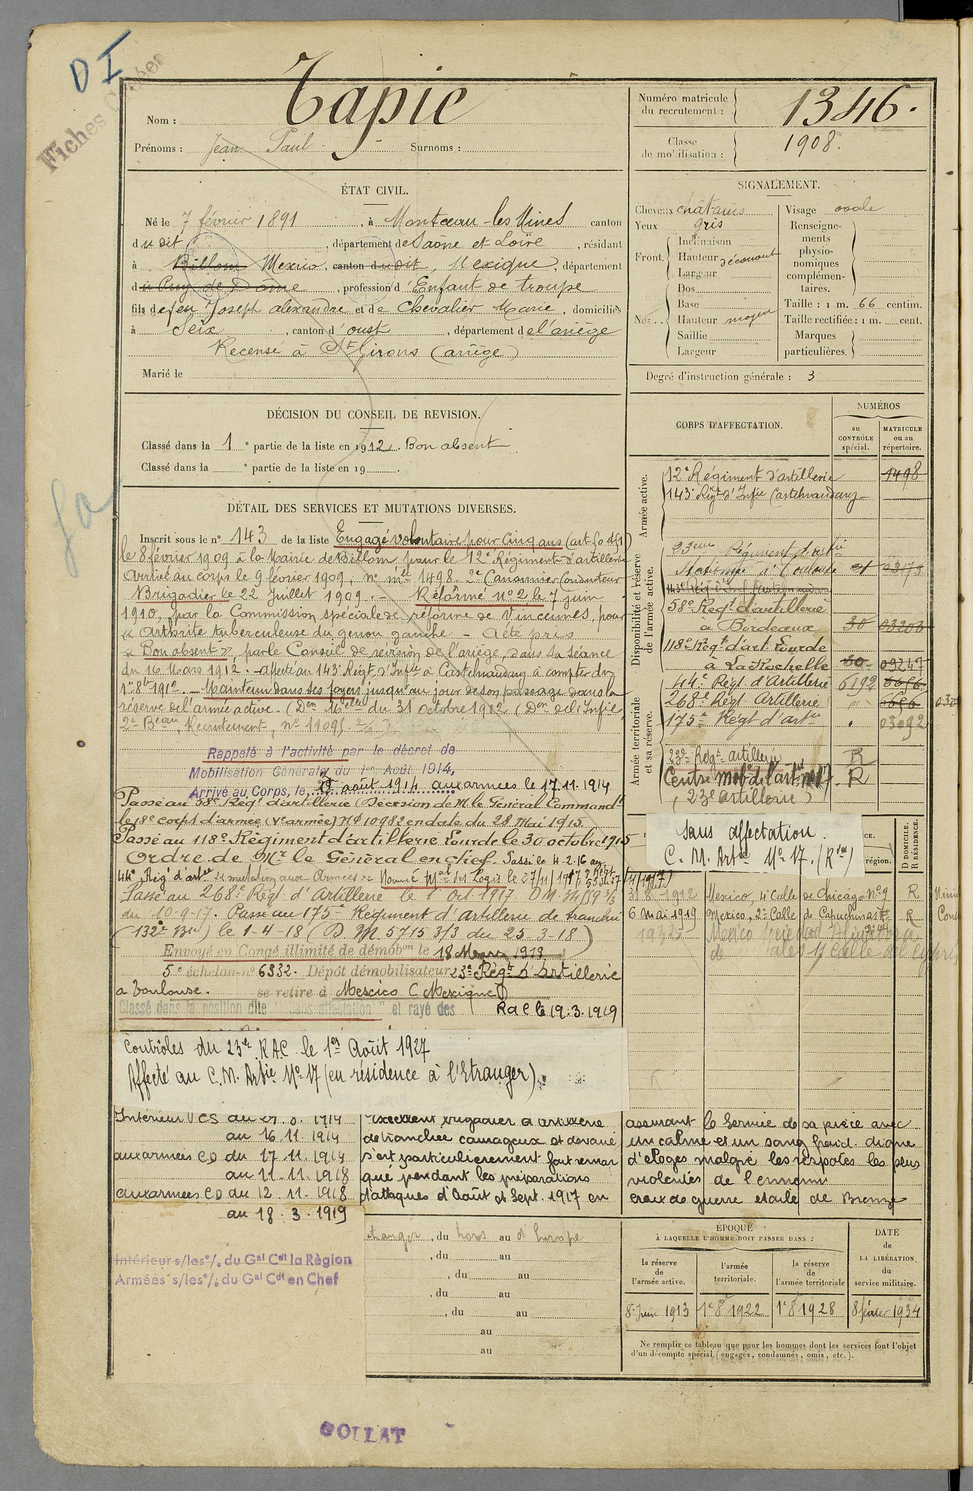 D I
Fiches
Nom : Tapie
Prénoms : Jean Paul Surnoms :
Numéro matricule du recrutement : 1346.
Classe de mobilisation : 1908.
ÉTAT CIVIL.
Né le 7 février 1891, à Montceau-les-Mines canton
du dit, département de Saone et Loire, résidant
à Billom Mexico, canton du dit, Mexique, département
du Puy de Dome, profession d'Enfant de troupe
fils de feu Joseph alexandre et de Chevalier Marie, domiciliés
à Seix, canton d'oust, département de l'ariège
Recensé à St Girons (ariège)
Marié le
SIGNALEMENT.
Cheveux chatains
Yeux gris
Front. Inclinaison
Hauteur découvert
Largeur
Nez. Dos
Base
Hauteur moyen
Saillie
Largeur
Visage ovale
Renseigne-
ments
physio-
nomiques
complémen-
taires.
Taille : 1 m. 66 centim.
Taille rectifiée : 1 m. cent.
Marques
particulières.
Degré d'instruction générale : 3
DÉCISION DU CONSEIL DE REVISION.
Classé dans la 1e partie de la liste en 1912. Bon absent
Classé dans la e partie de la liste en 19
CORPS D'AFFECTATION.
NUMÉROS
au CONTRÔLE spécial.
MATRICULE ou au répertoire.
Armée active.
12e Régiment d'artillerie 1498
143e Régt d'Infie Castelnaudary
Disponibilité et réserve de l'armée active.
58e Régt d'artillerie
à Bordeaux 30
118e Régt d'art Lourde
à La Rochelle 60 09247
Armée territoriale et sa réserve.
44e Régt d'Artillerie 6192
268e Régt Artillerie
175e Régt d'artie 03092
23e Régt artillerie R
Centre Mobr de l'artie no 17. R
(23e artillerie)
Sans affectation.
C. M. Artie No 17. (Rve)
DÉTAIL DES SERVICES ET MUTATIONS DIVERSES.
Inscrit sous le no 143 de la liste Engagé volontaire pour cinq ans
le 8 février 1909 à la Mairie de Billom pour le 12e Régiment d'artillerie
Arrivé au corps le 9 février 1909, No mle 1498. 2e Canonnier Conducteur
Brigadier le 22 Juillet 1909. — Réformé no 2 le 7 juin
1910, par la Commission spéciale de réforme de Vincennes, pour
« Arthrite tuberculeuse du genou gauche — A été pris
« Bon absent », par le Conseil de révision de l'ariège, dans la séance
du 16 Mars 1912. — Affecté au 143e Régt d'Infie à Castelnaudary à compter du
1er 8bre 1912. — Maintenu dans ses foyers jusqu'au jour de son passage dans la
réserve de l'armée active. (Don Melle du 31 Octobre 1912 (Don de l'Infie,
2e Beau, Recrutement, no 11091.
Rappelé à l'activité par le décret de
Mobilisation Générale du 1er Août 1914,
Arrivé au Corps, le août 1914 aux armées le 17.11.1914
Passé au 58e Régt d'artillerie (Décision de M. le Général Commandt
le 18e corps d'armée (Ve armée) No 10982 en date du 28 Mai 1915.
Passé au 118e Régiment d'artillerie Lourde le 30 octobre 1915
Ordre de Mr le Général en chef. Passé le 4-2-16 au
44e Rég d'artie Nommé Mal des Logis le 27/11/1917
Passé au 268e Régt d'Artillerie le 1 Oct 1917
du 10-9-17. Passé au 175e Régiment d'artillerie de tranchée
(132e Bie) le 1-4-18 (D. M. 5715 3/3 du 25-3-18)
Envoyé en Congé illimité de démobon le 18 Mars 1919
5e échelon no 6332. Dépôt démobilisateur 23e Régt d'Artillerie
à Toulouse. se retire à Mexico (Mexique)
Classé dans la position dite "sans affectation" et rayé des
contrôles du 23e R.A.C. le 1er Août 1927
Affecté au C.M. Artie No 17 (en résidence à l'Etranger).
R a C le 19.3.1919
région.
D DOMICILE. R RÉSIDENCE.
31 8-1912 Mexico, 4 Calle de Chicago No 9 R
6 Mai 1919 Mexico, 2e Calle de Capuchinas R
1932 Mexico
Intérieur CS du 1914
au 16.11.1914
aux armées CD du 17.11.1914
au 11.11.1918
aux armées CD du 12.11.1918
au 18.3.1919
Intérieur s/les o/s du Gal Cdt la Région
Armées s/les o/s du Gal Cdt en Chef
Excellent brigadier d'artillerie
de tranchée courageux et dévoué
s'est particulièrement fait remar
qué pendant les préparations
d'attaques d'Août et Sept. 1917 en
assurant le Service de sa pièce avec
un calme et un sang froid digne
d'éloges malgré les ripostes les plus
violentes de l'ennemi
croix de guerre étoile de Bronze
étranger, du hors au d'Europe
, du au
, du au
, du au
, du au
au
au
ÉPOQUE
À LAQUELLE L'HOMME DOIT PASSER DANS :
la réserve de l'armée active.
l'armée territoriale.
la réserve de l'armée territoriale
DATE de LA LIBÉRATION. du service militaire.
8 Juin 1913
1er 8 1922
1er 8 1928
8 février 1934
Ne remplir ce tableau que pour les hommes dont les services font l'objet
d'un décompte spécial (engagés, condamnés, omis, etc.).
GOLLAT